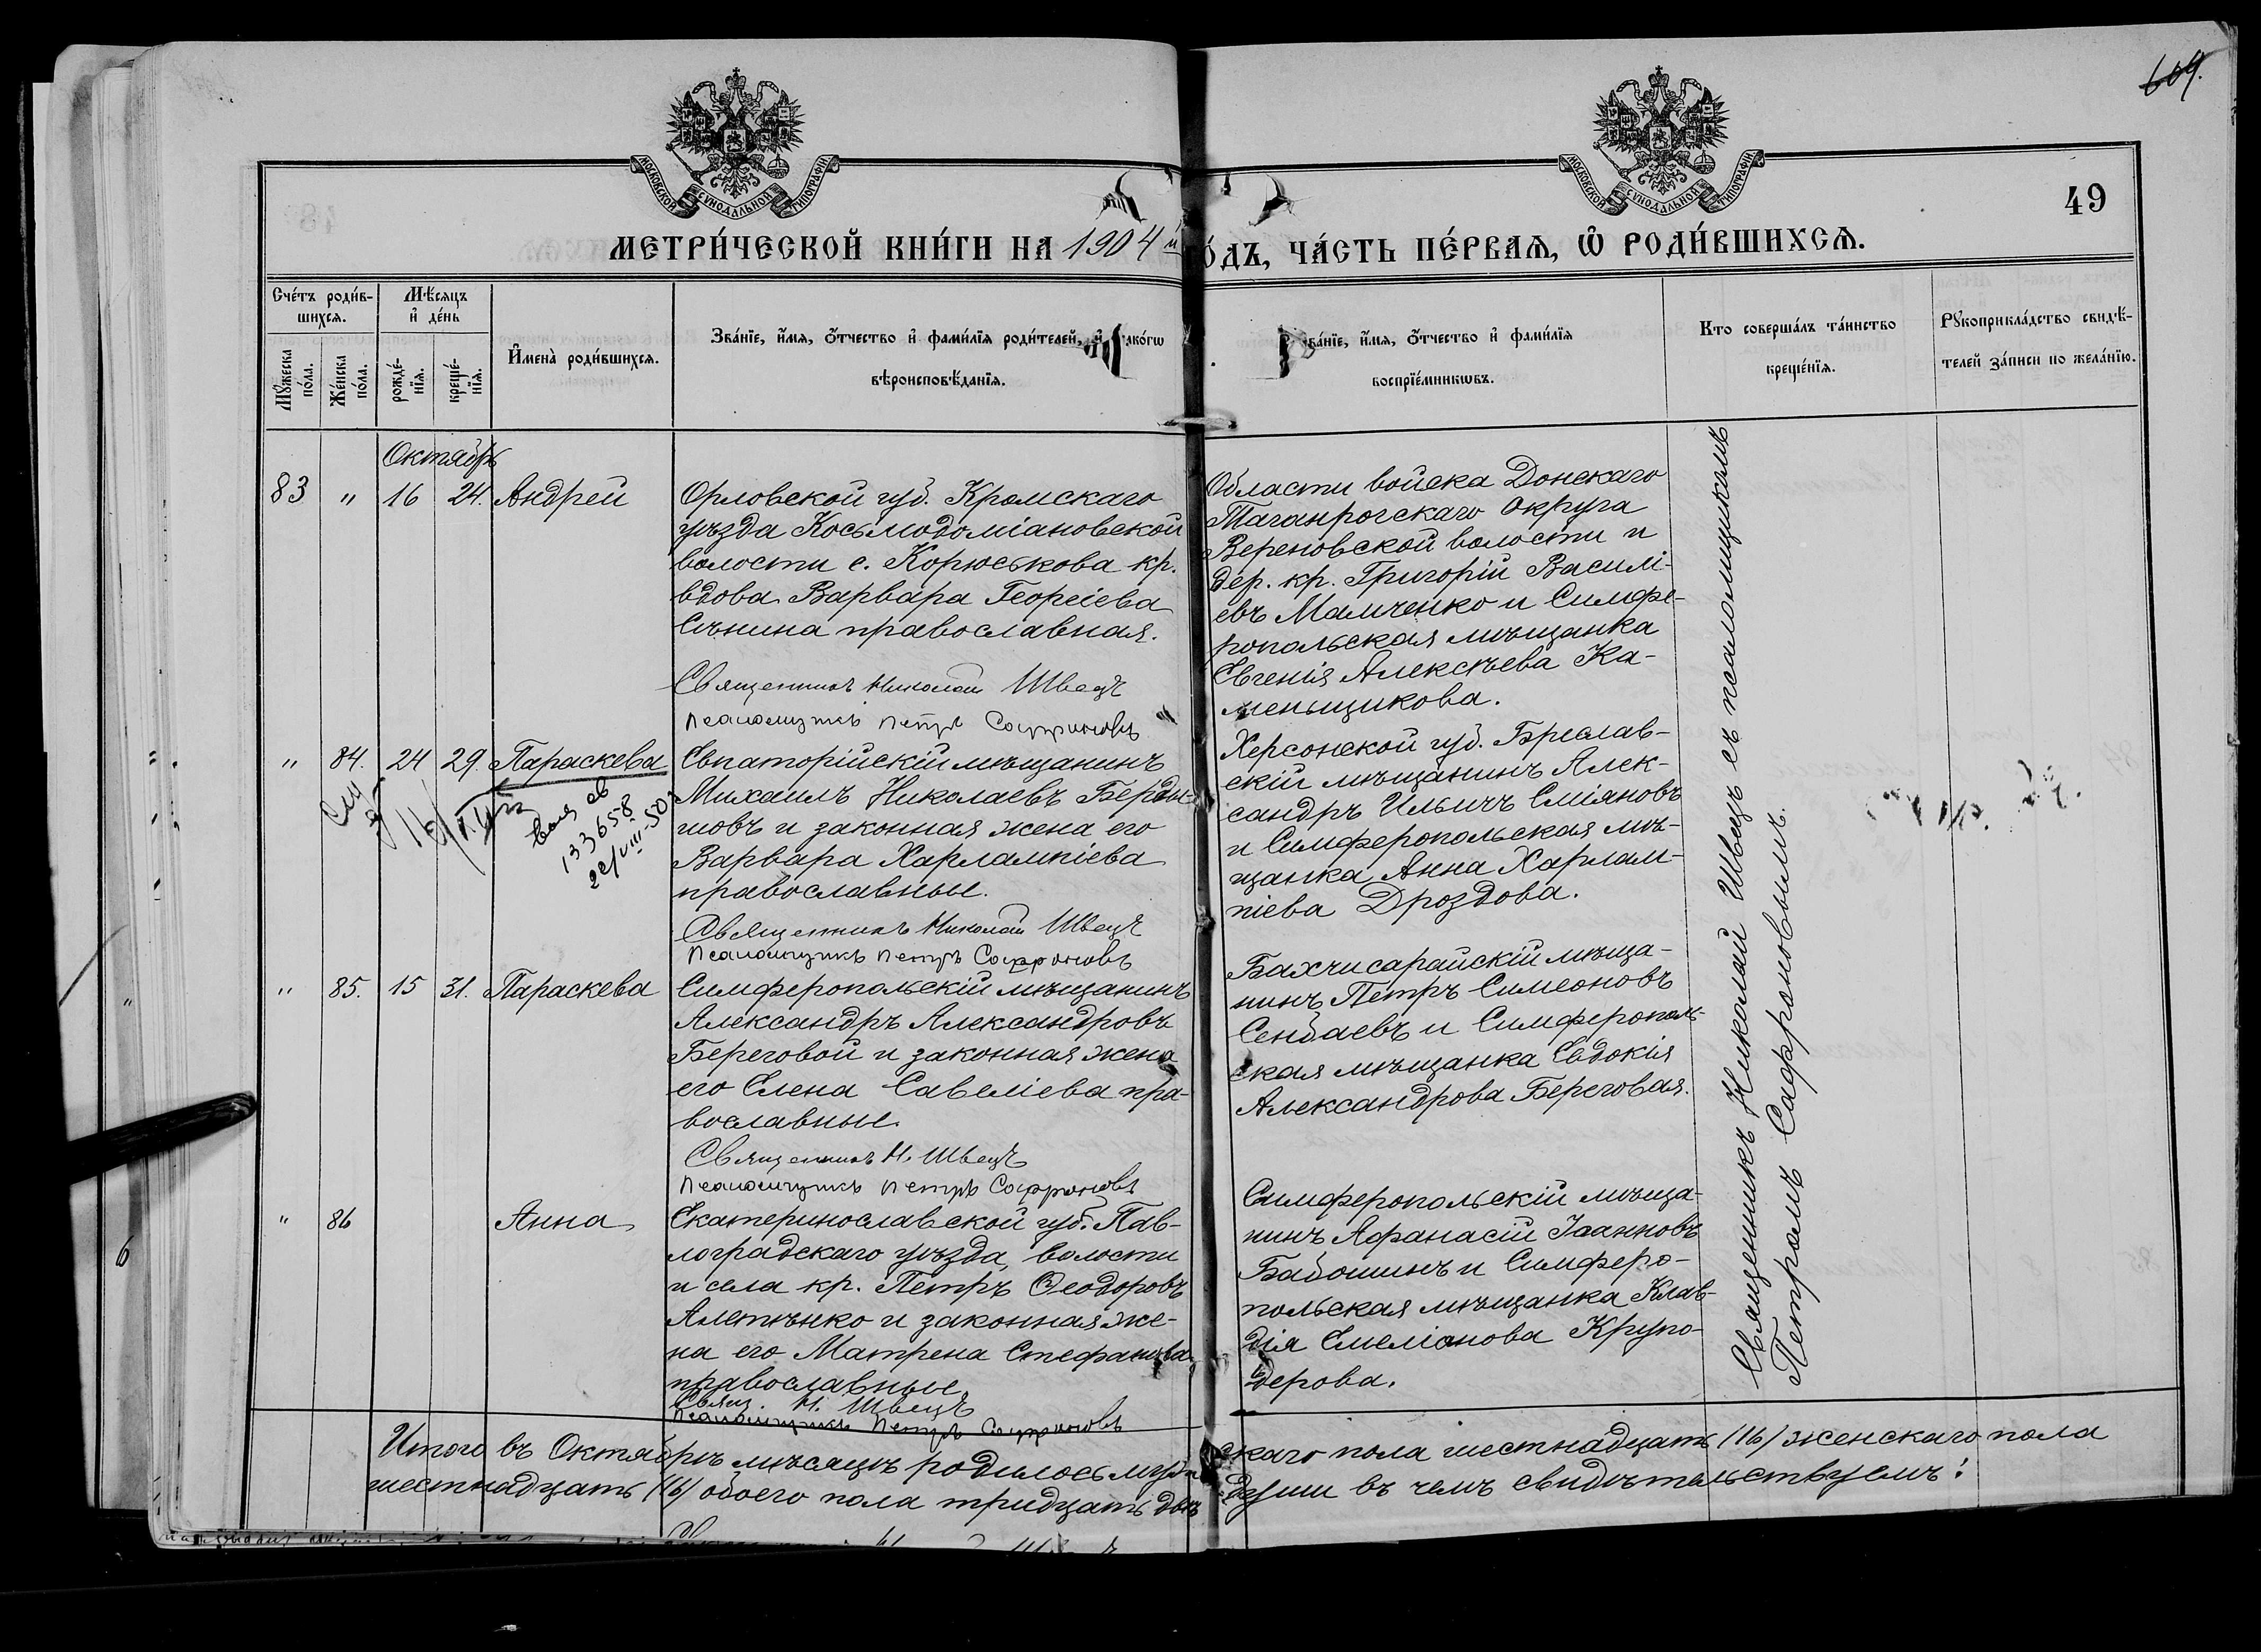 609.
МОСКОВСКОЙ СУНОДАЛЬНОЙ ТИПОГРАФІИ
МОСКОВСКОЙ СУНОДАЛЬНОЙ ТИПОГРАФІИ
49
МЕТРИ́ЧЕСКОЙ КНИ́ГИ НА 1904 й
О́ДЪ, ЧА́СТЬ ПЕ́РВАЯ, Ѿ РОДИ́ВШИХСЯ.
Сче́тъ роди́в-
шихся.
Мꙋ́жеска по́ла.
Же́нска по́ла.
Мѣ́сяцъ
и҆ де́нь
рожде́-
нїя.
креще́-
нїя.
И҆мена̀ роди́вшихся.
Зва́нїе, и҆́мя, ѻ҆́тчество и҆ фами́лїя роди́телей, и҆ како́гѡ
вѣроисповѣ́данїя.
Зва́нїе, и҆́мя, ѻ҆́тчество и҆ фами́лїя
воспрїе́мникѡвъ.
Кто соверша́лъ та́инство
креще́нїя.
Рꙋкоприкла́дство свидѣ́-
телей за́писи по жела́нїю.
Октябрь
83 " 16 24. Андрей
Орловской губ. Кромскаго
уѣзда Косьмодоміановской
волости с. Корюськова кр.
вдова Варвара Георгіева
Сѣнина православная.
Священникъ Николай Швецъ
Псаломщикъ Петръ Сафроновъ
Области войска Донскаго
Таганрогскаго округа
Вереновской волости и
дер. кр. Григорій Василі-
евъ Мамченко и Симфе-
ропольская мѣщанка
Евгенія Алексѣева Ка-
меньщикова.
" 84. 24 29. Параскева
133658
22/VIII-50
Евпаторійскій мѣщанинъ
Михаилъ Николаевъ Берды-
шовъ и законная жена его
Варвара Харлампіева
православные.
Священникъ Николай Швецъ
Псаломщикъ Петръ Сафроновъ
Херсонской губ. Бреслав-
скій мѣщанинъ Алек-
сандръ Ильичъ Сміяновъ
и Симферопольская мѣ-
щанка Анна Харлам-
піева Дроздова.
" 85. 15 31. Параскева
Симферопольскій мѣщанинъ
Александръ Александровъ
Береговой и законная жена
его Елена Савеліева пра-
вославные.
Священникъ Н. Швецъ
Псаломщикъ Петръ Сафроновъ
Бахчисарайскій мѣща-
нинъ Петръ Симеоновъ
Сенбаевъ и Симферополь-
ская мѣщанка Евдокія
Александрова Береговая.
" 86 Анна
Екатеринославской губ. Пав-
лоградскаго уѣзда, волости
и села кр. Петръ Ѳеодоровъ
Алетченко и законная же-
на его Матрена Стефанова
православные.
Свящ. Н. Швецъ
Псаломщикъ Петръ Сафроновъ
Симферопольскій мѣща-
нинъ Афанасій Іоанновъ
Бабошинъ и Симферо-
польская мѣщанка Клав-
дія Емеліанова Крупо-
дерова.
Священникъ Николай Швецъ съ псаломщикомъ
Петромъ Сафроновымъ.
Итого въ Октябрѣ мѣсяцѣ родилось мужескаго пола шестнадцать (16) женскаго пола
шестнадцать (16) обоего пола тридцать двѣ души въ чемъ свидѣтельствуемъ: